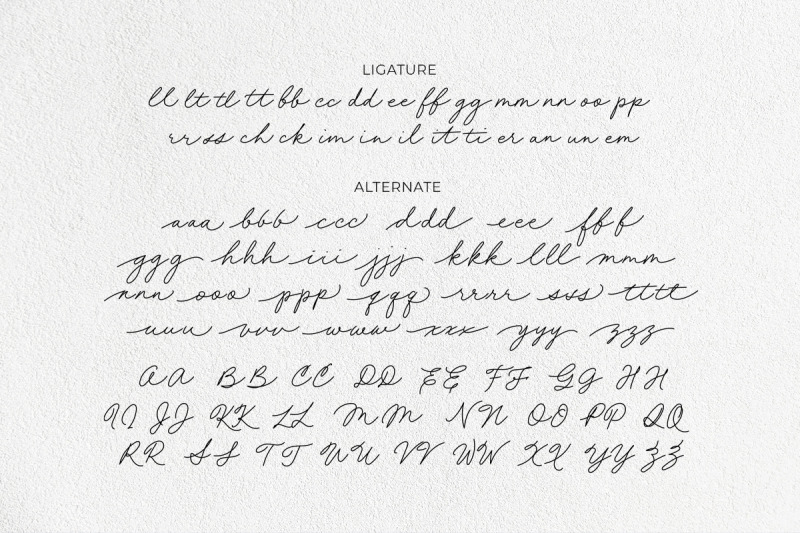 LIGATURE
ll lt tl tt bb cc dd ee ff gg mm nn oo pp
rr ss ch ck im in il it ti er an un em
ALTERNATE
aaa bbb ccc ddd eee fff
ggg hhh iii jjj kkk lll mmm
nnn ooo ppp qqq rrrr sss tttt
uuu vvv www xxx yyy zzz
AA BB CC DD EE FF GG HH
II JJ KK LL MM NN OO PP QQ
RR SS TT UU VV WW XX YY ZZ